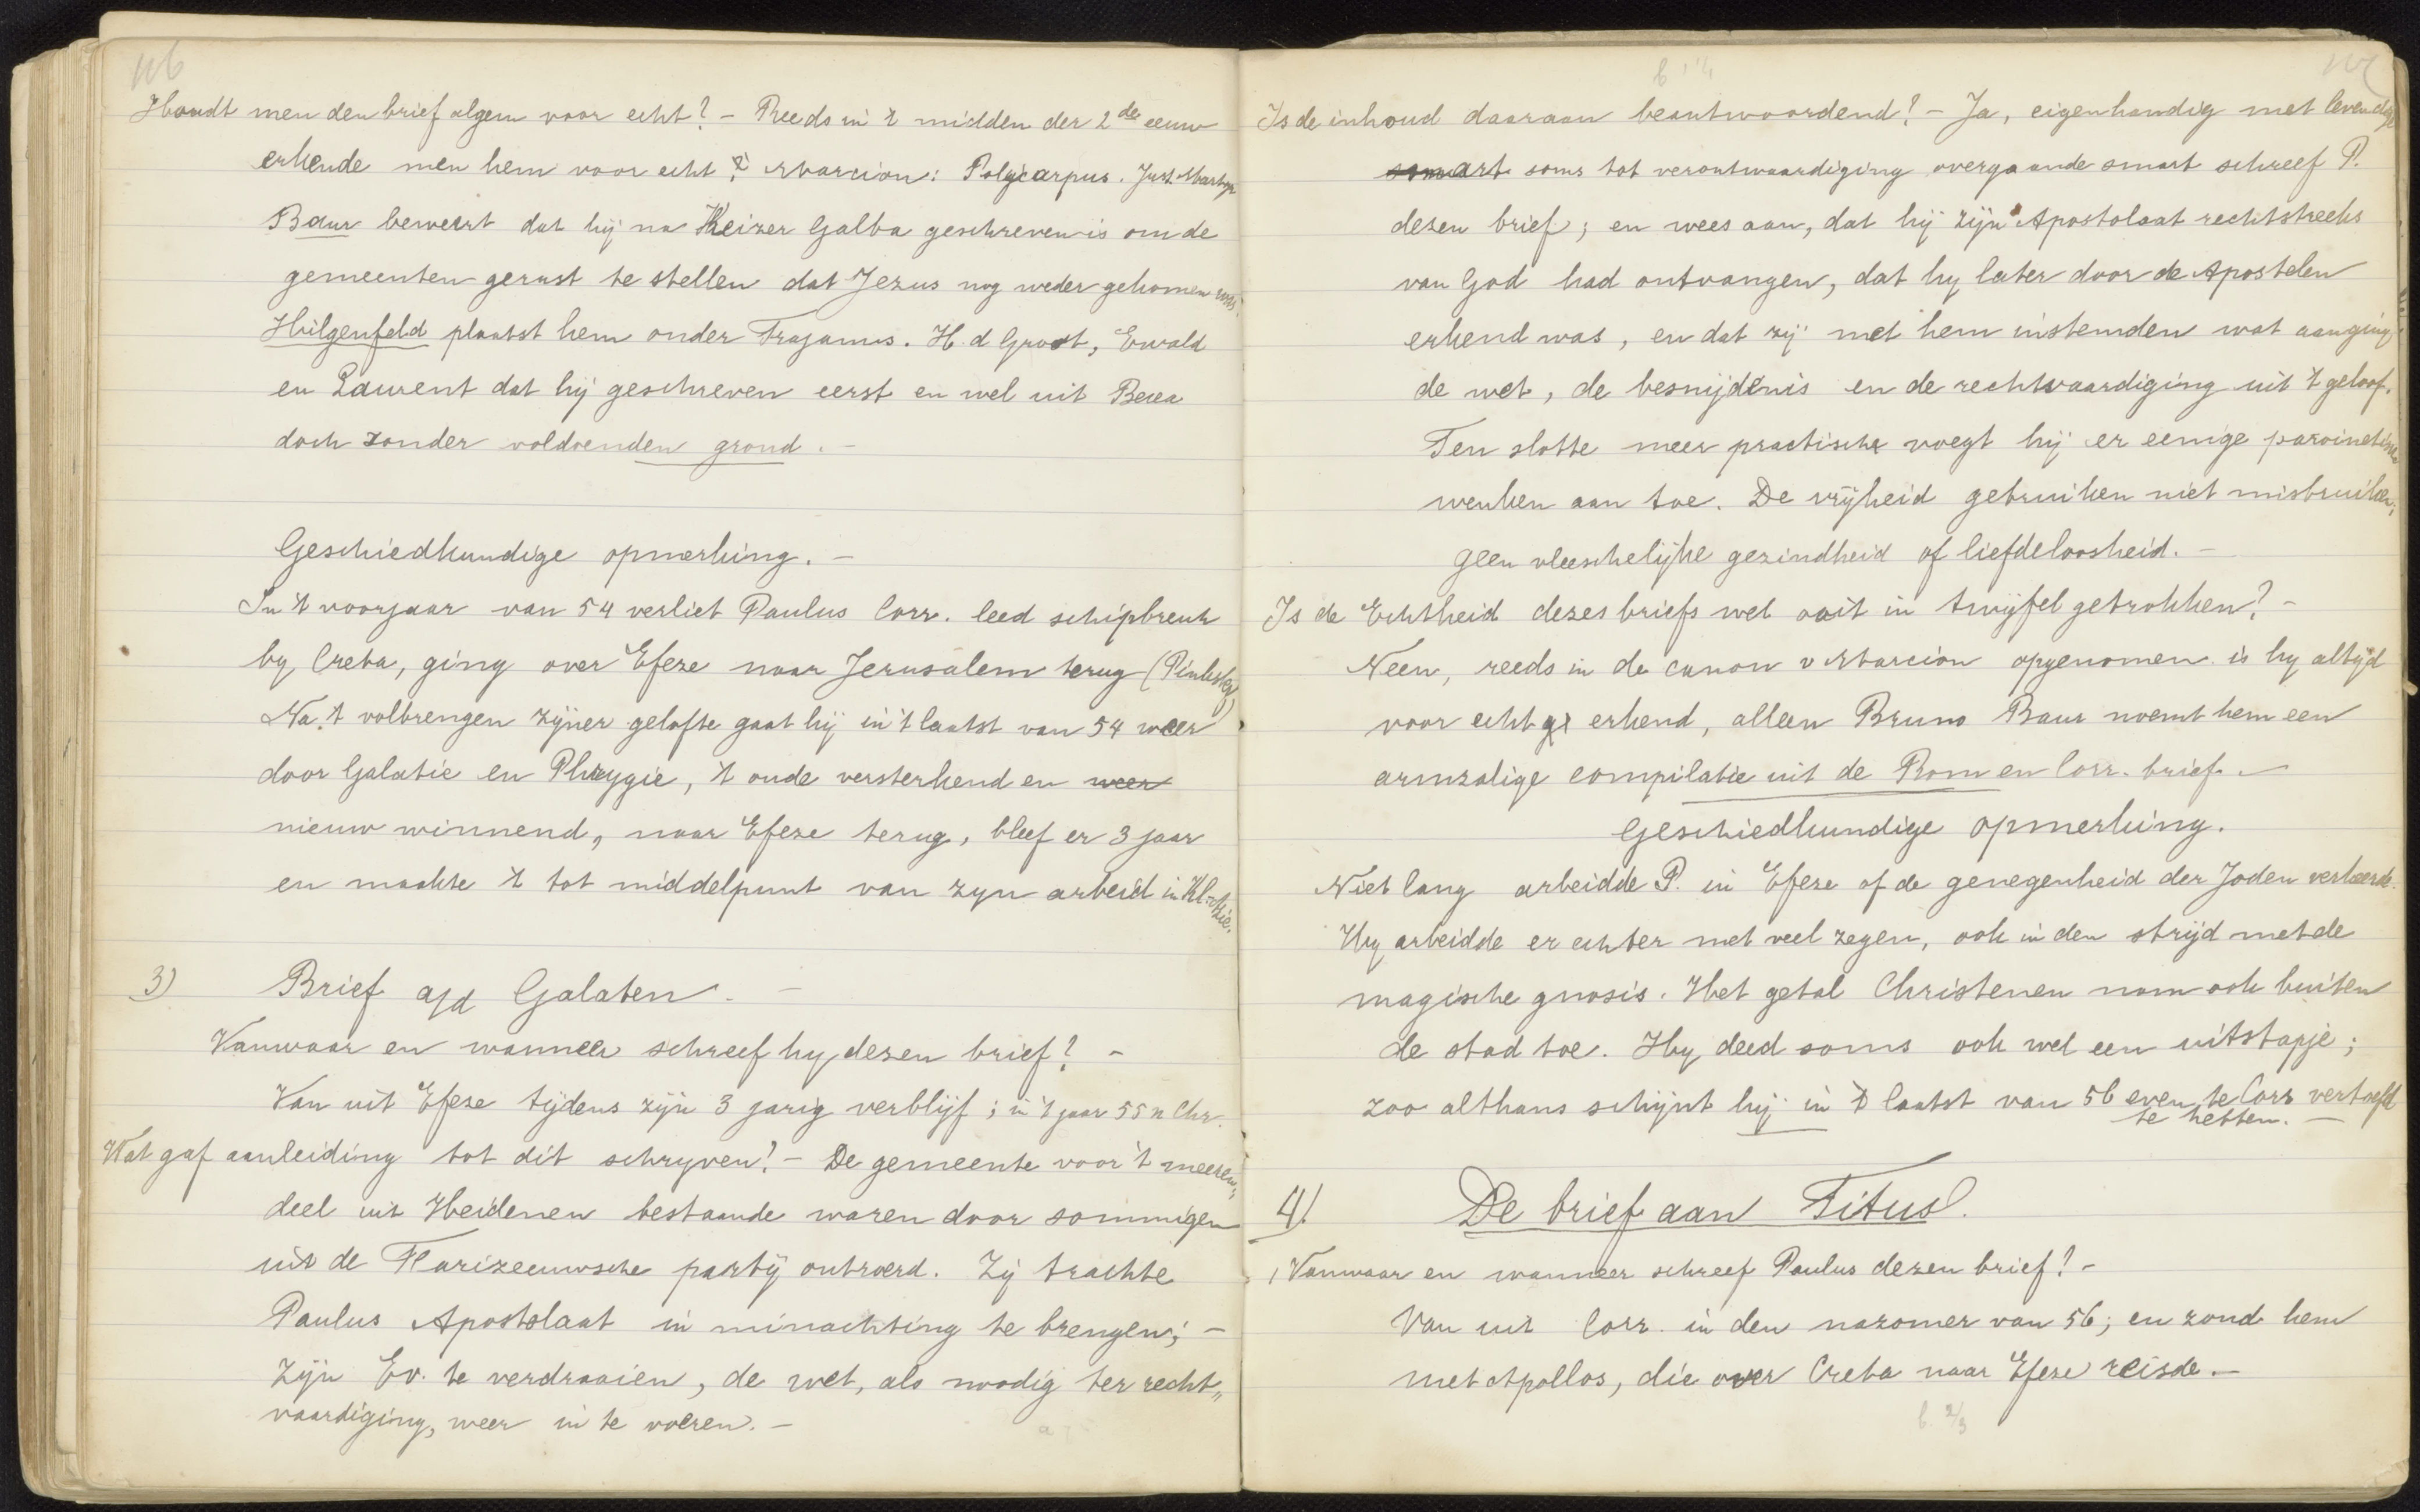 116
Houdt men den brief algem voor echt? - Reeds in 't midden der 2de eeuw
erkende men hem voor echt Marcion: Polycarpus. Just. Martyr
Baur beweert dat hij na Keizer Galba geschreven is om de
gemeenten gerust te stellen dat Jezus nog weder gekomen was.
Hilgenfeld plaatst hem onder Trajanus. H. d Groot, Ewald
en Laurent dat hij geschreven eerst en wel uit Berea
doch zonder voldoenden grond. -
Geschiedkundige opmerking. -
In 't voorjaar van 54 verliet Paulus Corr. leed schipbreuk
by Creta, ging over Efeze naar Jerusalem terug (Pinksterf)
Na 't volbrengen zijner gelofte gaat hij in 't laatst van 54 weer
door Galatie en Phrygie, 't oude versterkend en weer
nieuw winnend, naar Efeze terug, bleef er 3 jaar
en maakte 't tot middelpunt van zyn arbeid in Kl-Azie.
3) Brief a/d Galaten. -
Vanwaar en wanneer schreef hy dezen brief? -
Van uit Efeze tijdens zijn 3 jarig verblijf; in 't jaar 55 n Chr.
Wat gaf aanleiding tot dit schryven? - De gemeente voor 't meeren„
deel uit Heidenen bestaande waren door sommigen
uit de Farizeeuwsche partij ontroerd. Zij trachte
Paulus Apostolaat in minachting te brengen; -
zijn Ev. te verdraaien, de wet, als noodig ter recht„
vaardiging, weer in te voeren. -
Is de inhoud daaraan beantwoordend? - Ja, eigenhandig met levendige
smart soms tot verontwaardiging overgaande smart schreef P.
dezen brief; en wees aan, dat hij zijn Apostolaat rechtstreeks
van God had ontvangen, dat hy later door de Apostelen
erkend was, en dat zij met hem instemden wat aanging
de wet, de besnijdenis en de rechtvaardiging uit 't geloof.
Ten slotte meer practische voegt hij er eenige
wenken aan toe. De vrijheid gebruiken niet misbruiken;
geen vleeschelijke gezindheid of liefdeloosheid. -
Is de Echtheid dezes briefs wel ooit in twijfel getrokken? -
Neen, reeds in de canon v Marcion opgenomen is hy altijd
voor echt erkend, alleen Bruno Baur noemt hem een
armzalige compilatie uit de Rom en Corr. brief. -
Geschiedkundige opmerking.
Niet lang arbeidde P. in Efeze of de genegenheid der Joden verkeerde.
Hy arbeidde er echter met veel zegen, ook in den strijd met de
magische gnosis. Het getal Christenen nam ook buiten
de stad toe. Hy deed soms ook wel een uitstapje;
zoo althans schijnt hij in 't laatst van 56 even te Corr vertoefd
te hebben. -
4) De brief aan Titus.
Vanwaar en wanneer schreef Paulus dezen brief? -
Van uit Corr. in den nazomer van 56; en zond hem
met Apollos, die over Creta naar Efeze reisde. -